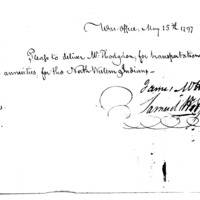 War-office, May 15th 1797
Please to deliver Mr Hodgdon, for transportation
annuities, for the North Western Indians.
James McH
Samuel Ho